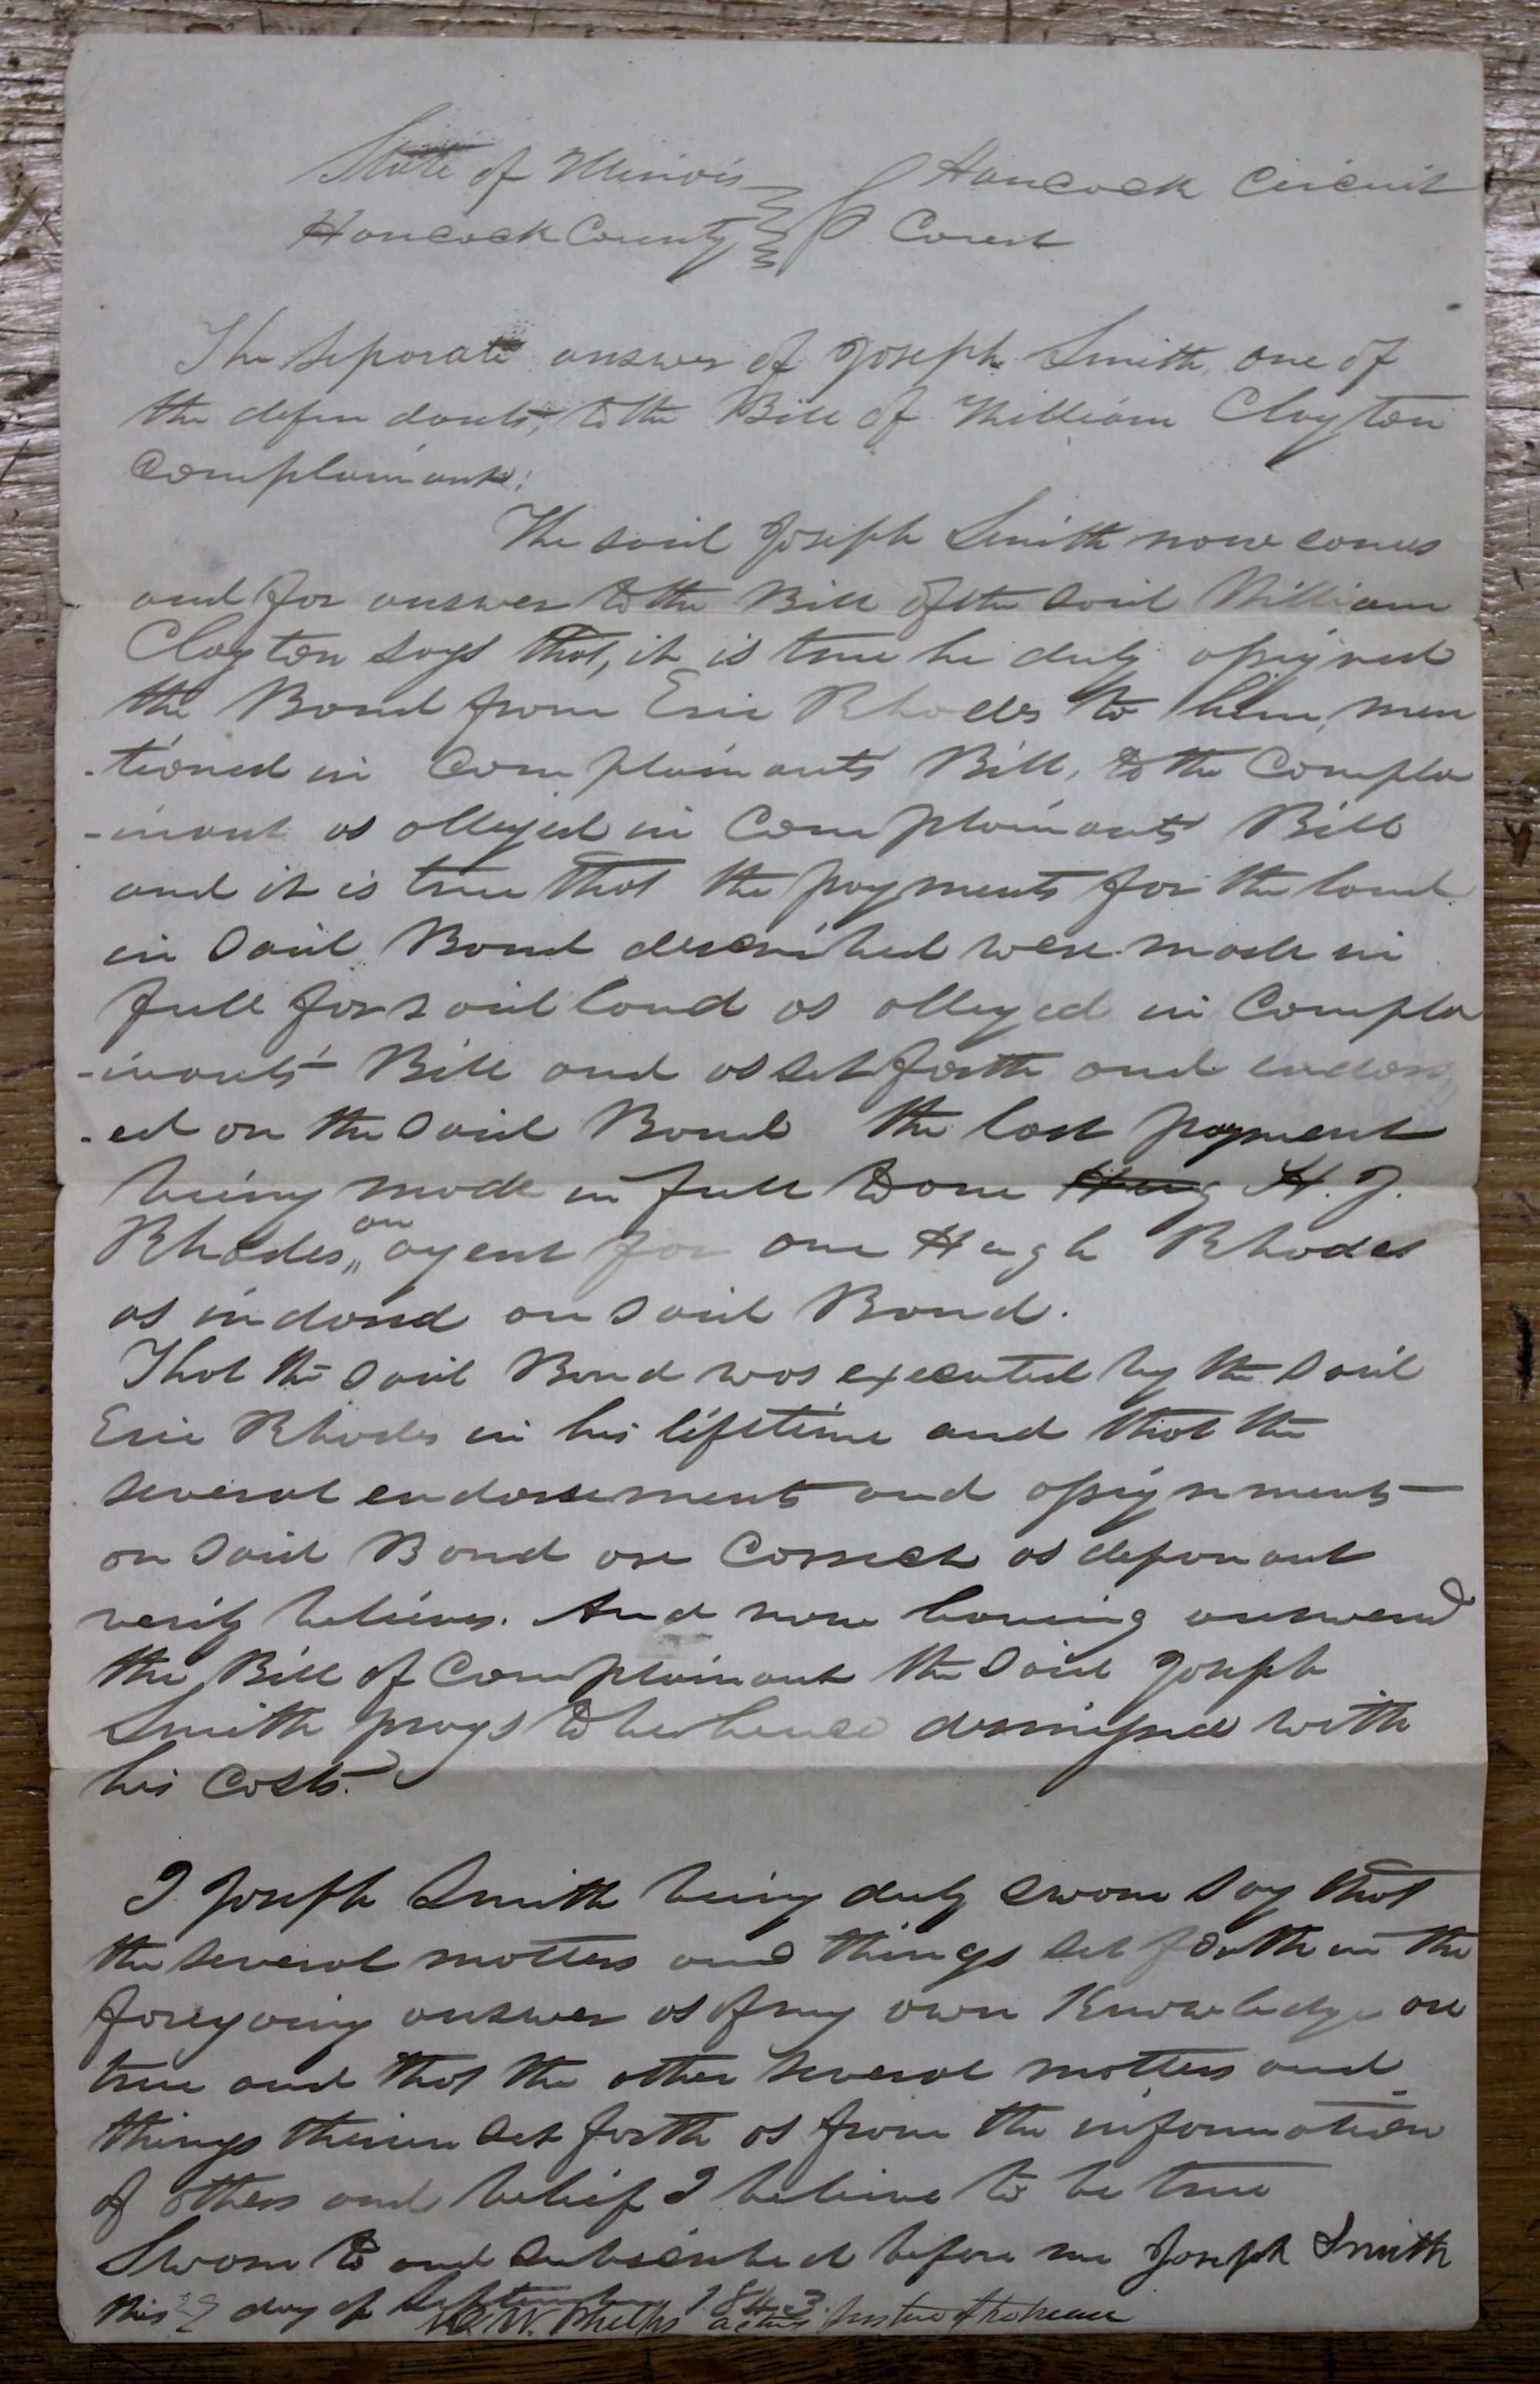 State of Illinois } Hancock Circuit
Hancock County } Court
The separate answer of Joseph Smith, one of
the defendants, to the Bill of William Clayton
Complainant:
The said Joseph Smith now comes
and for answer to the Bill of the said William
Clayton says that, it is true he duly assigned
the Bond from Eric Rhodes to him, men
-tioned in Complainants Bill, to the Compla
-inant as alleged in Complainants Bill
and it is true that the payments for the land
in said Bond described were made in
full for said land as alleged in Compla
-inants Bill and as set forth and endors
-ed on the said Bond the last payment
being made in full to one Hug H. J.
Rhodes, an agent for one Hugh Rhodes
as indorsd on said Bond.
That the said Bond was executed by the said
Eric Rhodes in his lifetime and that the
several endorsements and assignments
on said Bond are Correct as deponant
verily believes. And now having answered
the Bill of Complainant the said Joseph
Smith prays to be hence dismissed with
his Costs.
I Joseph Smith being duly sworn say that
the several matters and things set forth in the
foregoing answer as of my own Knowledge are
true and that the other several matters and
things therein set forth as from the information
of others and belief I believe to be true
Sworn to and subscribed before me Joseph Smith
this day of September 1843.
W. W. Phelps acting Justice of the Peace